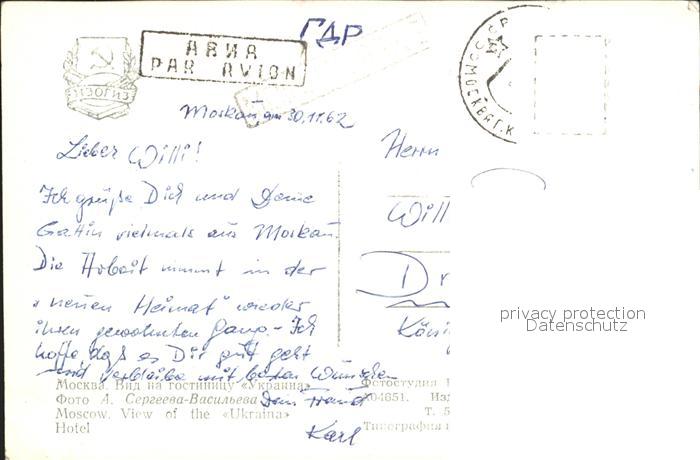 ГДР
АВИА
PAR AVION
ИЗОГИЗ
МОСКВА Г.К
Moskau am 30.11.62
Lieber Willi!
Ich grüße Dich und Deine
Gattin vielmals aus Moskau.
Die Arbeit nimmt in der
"neuen Heimat" wieder
ihren gewohnten Gang. - Ich
hoffe, daß es Dir gut geht
und verbleibe mit besten Wünschen
Dein Freund
Karl
Herrn
Will
Dr
Köni
privacy protection
Datenschutz
Москва. Вид на гостиницу «Украина»
Фото А. Сергеева-Васильева
Moscow. View of the «Ukraina»
Hotel
Фотостудия
Х04651. Из
Т. 5
Типография